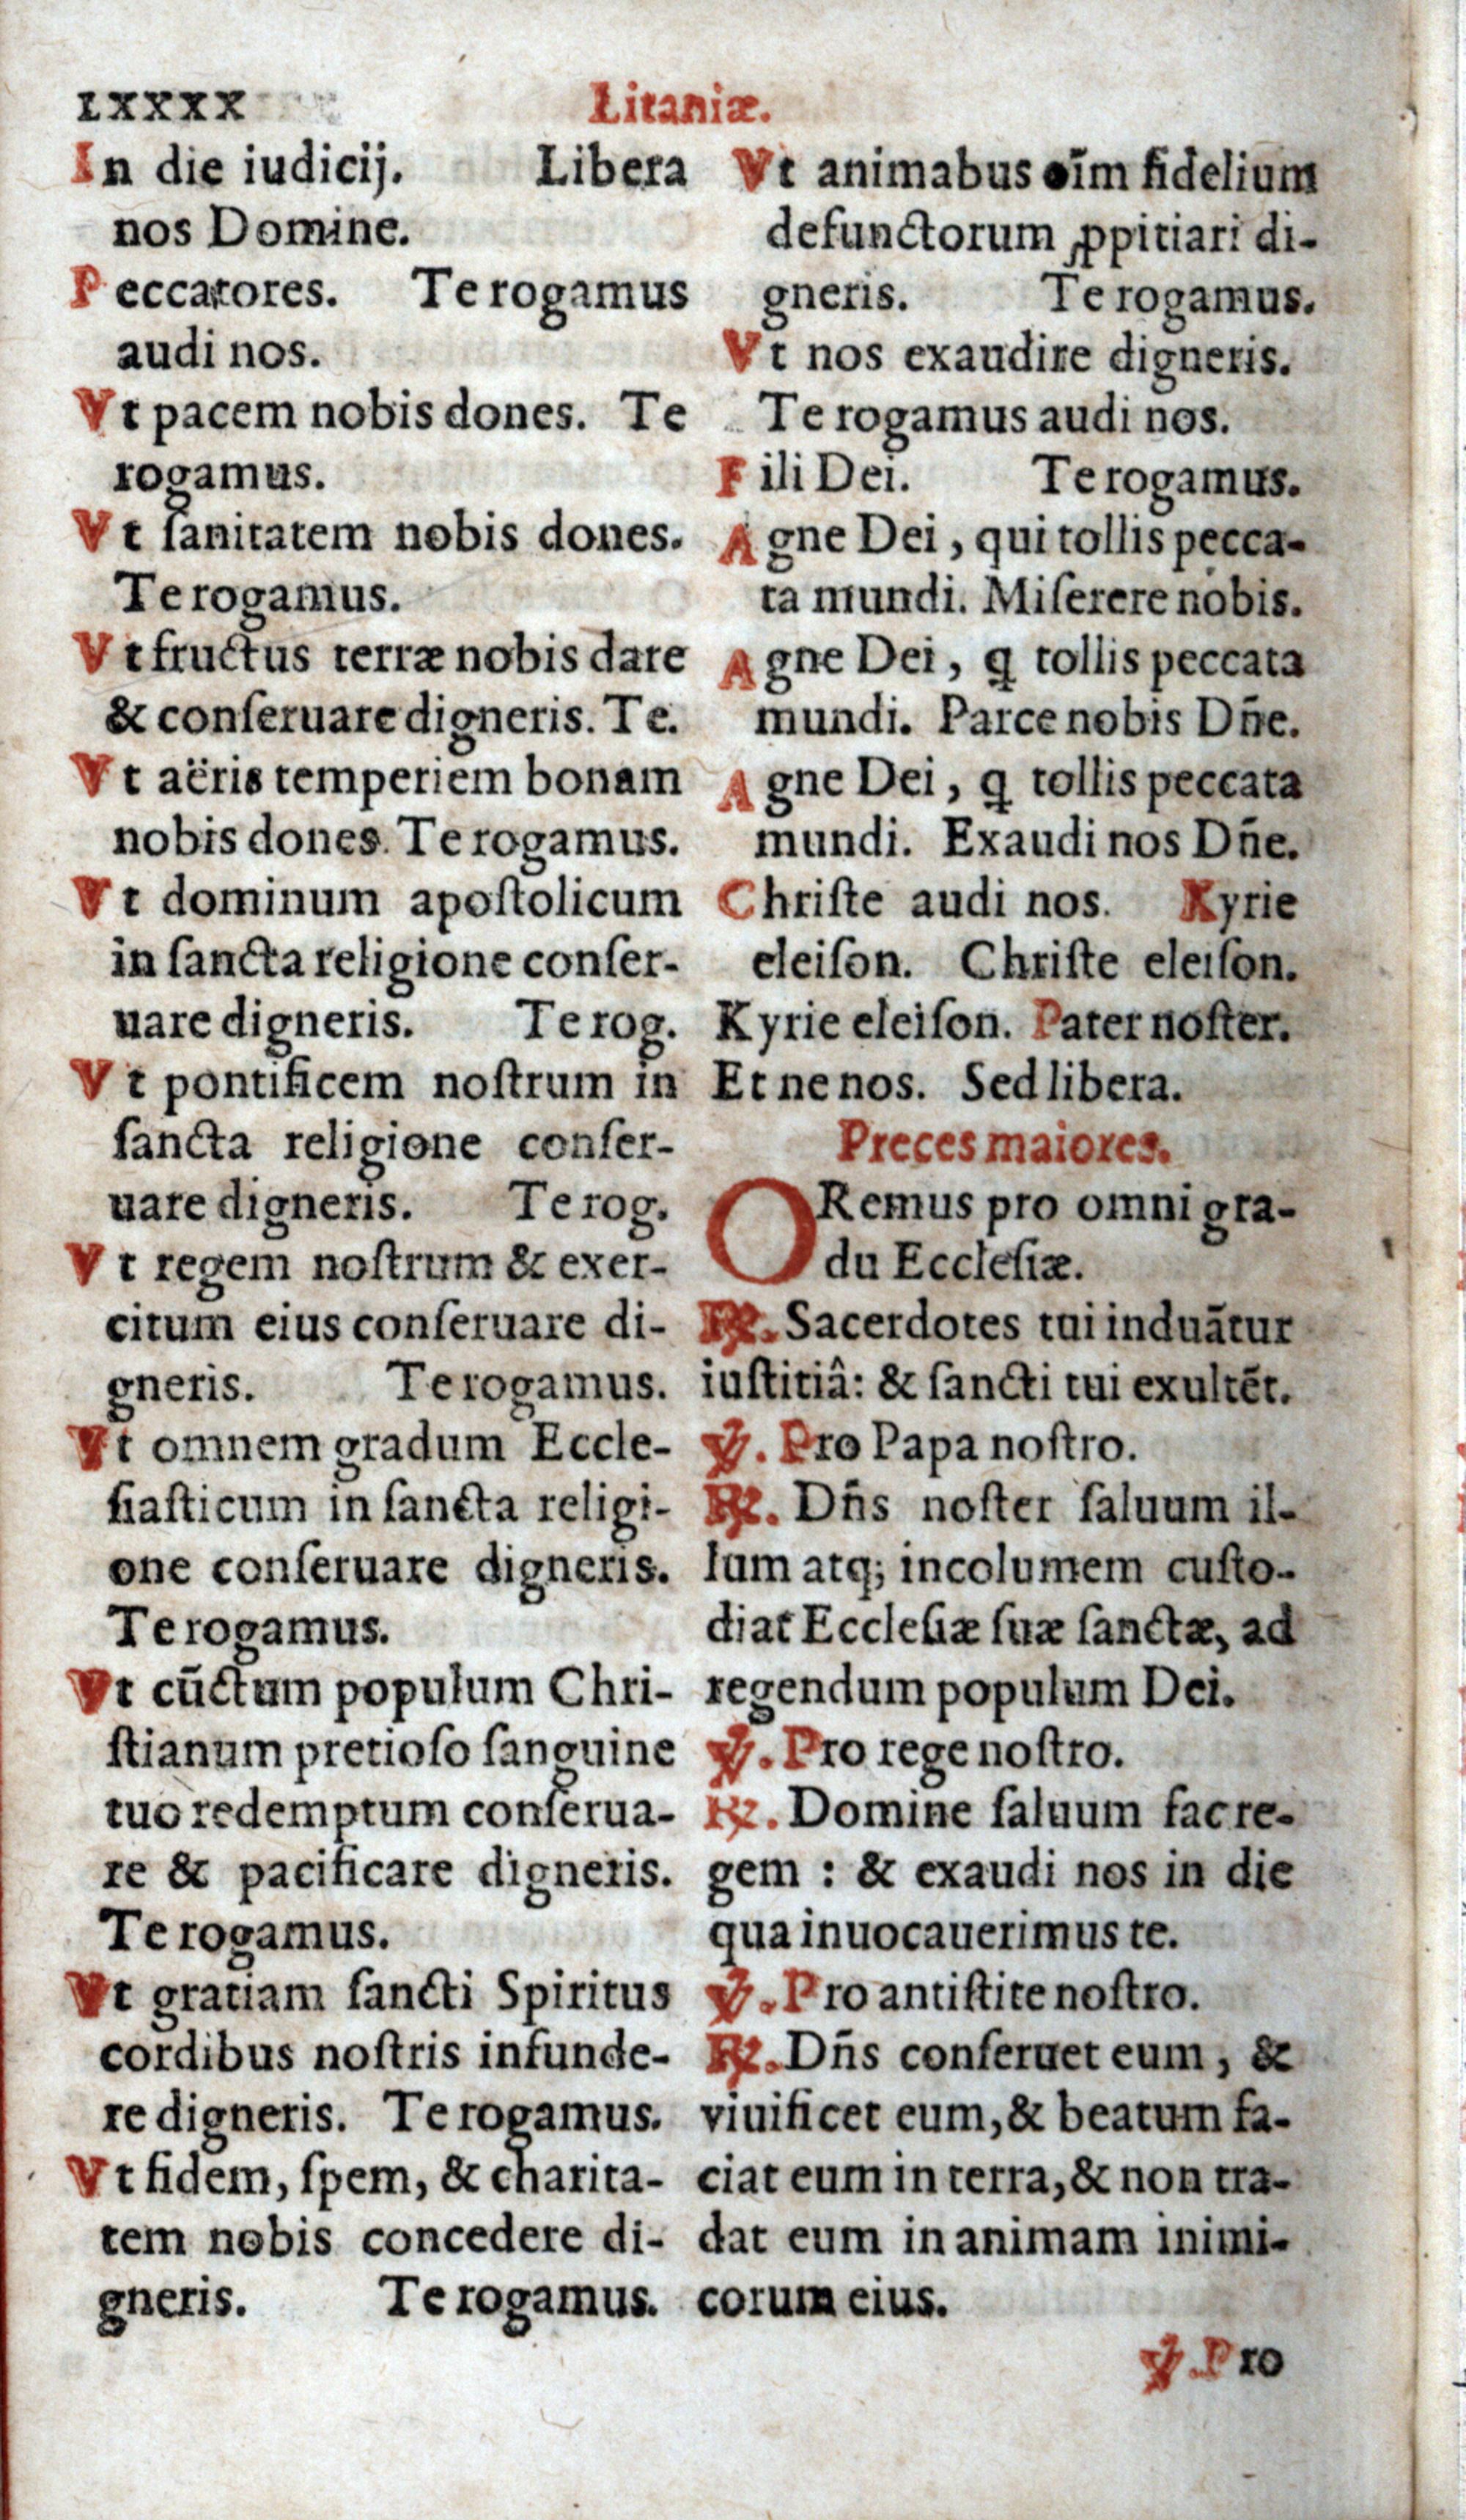 LXXXX
Litaniæ.
In die iudicij. Libera
nos Domine.
Peccatores. Te rogamus
audi nos.
Vt pacem nobis dones. Te
rogamus.
Vt ſanitatem nobis dones.
Te rogamus.
Vt fructus terræ nobis dare
& conſeruare digneris. Te.
Vt aëris temperiem bonam
nobis dones. Te rogamus.
Vt dominum apoſtolicum
in ſancta religione conſer-
uare digneris. Te rog.
Vt pontificem noſtrum in
ſancta religione conſer-
uare digneris. Te rog.
Vt regem noſtrum & exer-
citum eius conſeruare di-
gneris. Te rogamus.
Vt omnem gradum Eccle-
ſiaſticum in ſancta religi-
one conſeruare digneris.
Te rogamus.
Vt cūctum populum Chri-
ſtianum pretioſo ſanguine
tuo redemptum conſerua-
re & pacificare digneris.
Te rogamus.
Vt gratiam ſancti Spiritus
cordibus noſtris infunde-
re digneris. Te rogamus.
Vt fidem, ſpem, & charita-
tem nobis concedere di-
gneris. Te rogamus.
Vt animabus oīm fidelium
defunctorum ꝓpitiari di-
gneris. Te rogamus.
Vt nos exaudire digneris.
Te rogamus audi nos.
Fili Dei. Te rogamus.
Agne Dei, qui tollis pecca-
ta mundi. Miſerere nobis.
Agne Dei, ꝗ tollis peccata
mundi. Parce nobis Dñe.
Agne Dei, ꝗ tollis peccata
mundi. Exaudi nos Dñe.
Chriſte audi nos. Kyrie
eleiſon. Chriſte eleiſon.
Kyrie eleiſon. Pater noſter.
Et ne nos. Sed libera.
Preces maiores.
ORemus pro omni gra-
du Eccleſiæ.
℟. Sacerdotes tui induātur
iuſtitiâ: & ſancti tui exultēt.
℣. Pro Papa noſtro.
℟. Dñs noſter ſaluum il-
lum atq; incolumem cuſto-
diat Eccleſiæ ſuæ ſanctæ, ad
regendum populum Dei.
℣. Pro rege noſtro.
℟. Domine ſaluum fac re-
gem : & exaudi nos in die
qua inuocauerimus te.
℣. Pro antiſtite noſtro.
℟. Dñs conſeruet eum, &
viuificet eum, & beatum fa-
ciat eum in terra, & non tra-
dat eum in animam inimi-
corum eius.
℣. Pro